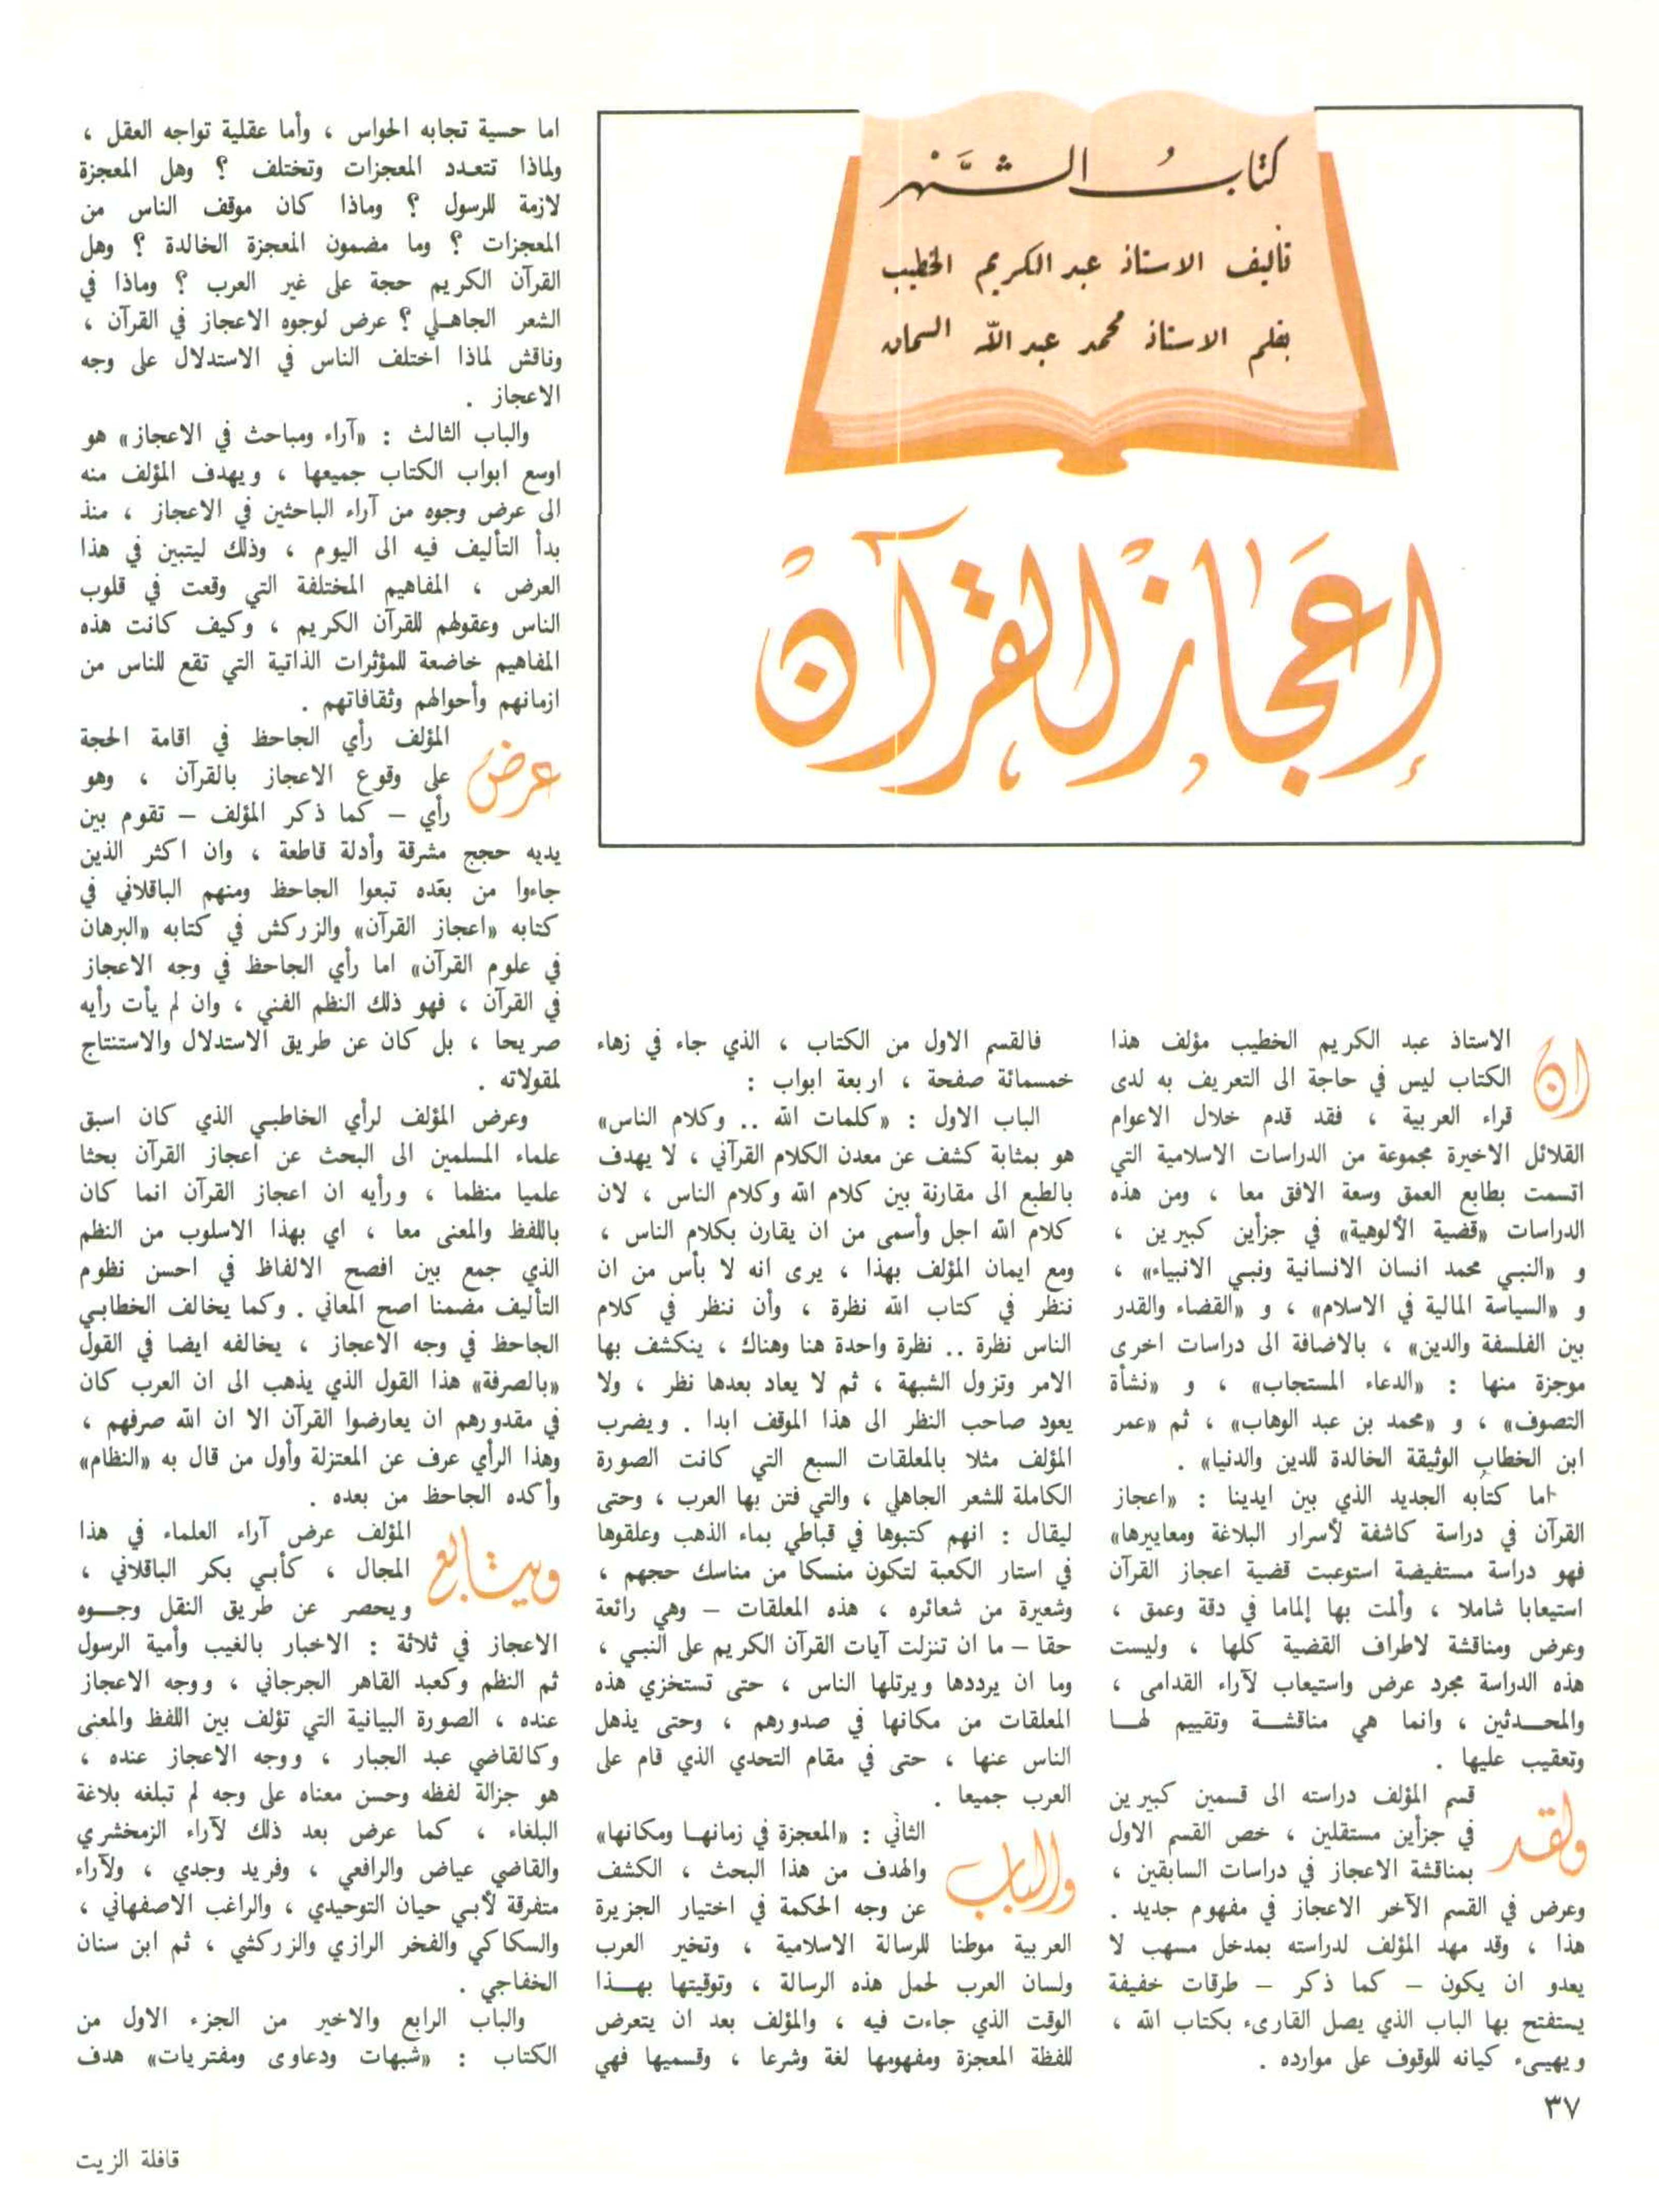 كتابُ الشَّهْر
تأليف الاستاذ عبد الكريم الخطيب
بقلم الاستاذ محمد عبد الله السمان
إعجاز القرآن
ان الاستاذ عبد الكريم الخطيب مؤلف هذا
الكتاب ليس في حاجة الى التعريف به لدى
قراء العربية ، فقد قدم خلال الاعوام
القلائل الاخيرة مجموعة من الدراسات الاسلامية التي
اتسمت بطابع العمق وسعة الافق معا ، ومن هذه
الدراسات «قضية الألوهية» في جزأين كبيرين ،
و «النبي محمد انسان الانسانية ونبي الانبياء» ،
و «السياسة المالية في الاسلام» ، و «القضاء والقدر
بين الفلسفة والدين» ، بالاضافة الى دراسات اخرى
موجزة منها : «الدعاء المستجاب» ، و «نشأة
التصوف» ، و «محمد بن عبد الوهاب» ، ثم «عمر
ابن الخطاب الوثيقة الخالدة للدين والدنيا» .
اما كتابه الجديد الذي بين ايدينا : «اعجاز
القرآن في دراسة كاشفة لأسرار البلاغة ومعاييرها»
فهو دراسة مستفيضة استوعبت قضية اعجاز القرآن
استيعابا شاملا ، وألمت بها إلماما في دقة وعمق ،
وعرض ومناقشة لاطراف القضية كلها ، وليست
هذه الدراسة مجرد عرض واستيعاب لآراء القدامى ،
والمحـدثين ، وانما هي مناقشـة وتقييم لهـا
وتعقيب عليها .
ولقد قسم المؤلف دراسته الى قسمين كبيرين
في جزأين مستقلين ، خص القسم الاول
بمناقشة الاعجاز في دراسات السابقين ،
وعرض في القسم الآخر الاعجاز في مفهوم جديد .
هذا ، وقد مهد المؤلف لدراسته بمدخل مسهب لا
يعدو ان يكون – كما ذكر – طرقات خفيفة
يستفتح بها الباب الذي يصل القارىء بكتاب الله ،
ويهيىء كيانه للوقوف على موارده .
فالقسم الاول من الكتاب ، الذي جاء في زهاء
خمسمائة صفحة ، اربعة ابواب :
الباب الاول : «كلمات الله .. وكلام الناس»
هو بمثابة كشف عن معدن الكلام القرآني ، لا يهدف
بالطبع الى مقارنة بين كلام الله وكلام الناس ، لان
كلام الله اجل وأسمى من ان يقارن بكلام الناس ،
ومع ايمان المؤلف بهذا ، يرى انه لا بأس من ان
ننظر في كتاب الله نظرة ، وأن ننظر في كلام
الناس نظرة .. نظرة واحدة هنا وهناك ، ينكشف بها
الامر وتزول الشبهة ، ثم لا يعاد بعدها نظر ، ولا
يعود صاحب النظر الى هذا الموقف ابدا . ويضرب
المؤلف مثلا بالمعلقات السبع التي كانت الصورة
الكاملة للشعر الجاهلي ، والتي فتن بها العرب ، وحتى
ليقال : انهم كتبوها في قباطي بماء الذهب وعلقوها
في استار الكعبة لتكون منسكا من مناسك حجهم ،
وشعيرة من شعائره ، هذه المعلقات – وهي رائعة
حقا – ما ان تنزلت آيات القرآن الكريم على النبي ،
وما ان يرددها ويرتلها الناس ، حتى تستخزي هذه
المعلقات من مكانها في صدورهم ، وحتى يذهل
الناس عنها ، حتى في مقام التحدي الذي قام على
العرب جميعا .
والباب الثاني : «المعجزة في زمانها ومكانها»
والهدف من هذا البحث ، الكشف
عن وجه الحكمة في اختيار الجزيرة
العربية موطنا للرسالة الاسلامية ، وتخير العرب
ولسان العرب لحمل هذه الرسالة ، وتوقيتها بهـذا
الوقت الذي جاءت فيه ، والمؤلف بعد ان يتعرض
للفظة المعجزة ومفهومها لغة وشرعا ، وقسميها فهي
اما حسية تجابه الحواس ، وأما عقلية تواجه العقل ،
ولماذا تتعدد المعجزات وتختلف ؟ وهل المعجزة
لازمة للرسول ؟ وماذا كان موقف الناس من
المعجزات ؟ وما مضمون المعجزة الخالدة ؟ وهل
القرآن الكريم حجة على غير العرب ؟ وماذا في
الشعر الجاهـلي ؟ عرض لوجوه الاعجاز في القرآن ،
وناقش لماذا اختلف الناس في الاستدلال على وجه
الاعجاز .
والباب الثالث : «آراء ومباحث في الاعجاز» هو
اوسع ابواب الكتاب جميعها ، ويهدف المؤلف منه
الى عرض وجوه من آراء الباحثين في الاعجاز ، منذ
بدأ التأليف فيه الى اليوم ، وذلك ليتبين في هذا
العرض ، المفاهيم المختلفة التي وقعت في قلوب
الناس وعقولهم للقرآن الكريم ، وكيف كانت هذه
المفاهيم خاضعة للمؤثرات الذاتية التي تقع للناس من
ازمانهم وأحوالهم وثقافاتهم .
عرض المؤلف رأي الجاحظ في اقامة الحجة
على وقوع الاعجاز بالقرآن ، وهو
رأي – كما ذكر المؤلف – تقوم بين
يديه حجج مشرقة وأدلة قاطعة ، وان اكثر الذين
جاءوا من بعده تبعوا الجاحظ ومنهم الباقلاني في
كتابه «اعجاز القرآن» والزركش في كتابه «البرهان
في علوم القرآن» اما رأي الجاحظ في وجه الاعجاز
في القرآن ، فهو ذلك النظم الفني ، وان لم يأت رأيه
صريحا ، بل كان عن طريق الاستدلال والاستنتاج
لمقولاته .
وعرض المؤلف لرأي الخاطبي الذي كان اسبق
علماء المسلمين الى البحث عن اعجاز القرآن بحثا
علميا منظما ، ورأيه ان اعجاز القرآن انما كان
باللفظ والمعنى معا ، اي بهذا الاسلوب من النظم
الذي جمع بين افصح الالفاظ في احسن نظوم
التأليف مضمنا اصح المعاني . وكما يخالف الخطابي
الجاحظ في وجه الاعجاز ، يخالفه ايضا في القول
«بالصرفة» هذا القول الذي يذهب الى ان العرب كان
في مقدورهم ان يعارضوا القرآن الا ان الله صرفهم ،
وهذا الرأي عرف عن المعتزلة وأول من قال به «النظام»
وأكده الجاحظ من بعده .
ويتابع المؤلف عرض آراء العلماء في هذا
المجال ، كأبي بكر الباقلاني ،
ويحصر عن طريق النقل وجـوه
الاعجاز في ثلاثة : الاخبار بالغيب وأمية الرسول
ثم النظم وكعبد القاهر الجرجاني ، ووجه الاعجاز
عنده ، الصورة البيانية التي تؤلف بين اللفظ والمعنى
وكالقاضي عبد الجبار ، ووجه الاعجاز عنده ،
هو جزالة لفظه وحسن معناه على وجه لم تبلغه بلاغة
البلغاء ، كما عرض بعد ذلك لآراء الزمخشري
والقاضي عياض والرافعي ، وفريد وجدي ، ولآراء
متفرقة لأبي حيان التوحيدي ، والراغب الاصفهاني ،
والسكاكي والفخر الرازي والزركشي ، ثم ابن سنان
الخفاجي .
والباب الرابع والاخير من الجزء الاول من
الكتاب : «شبهات ودعاوى ومفتريات» هدف
٣٧
قافلة الزيت